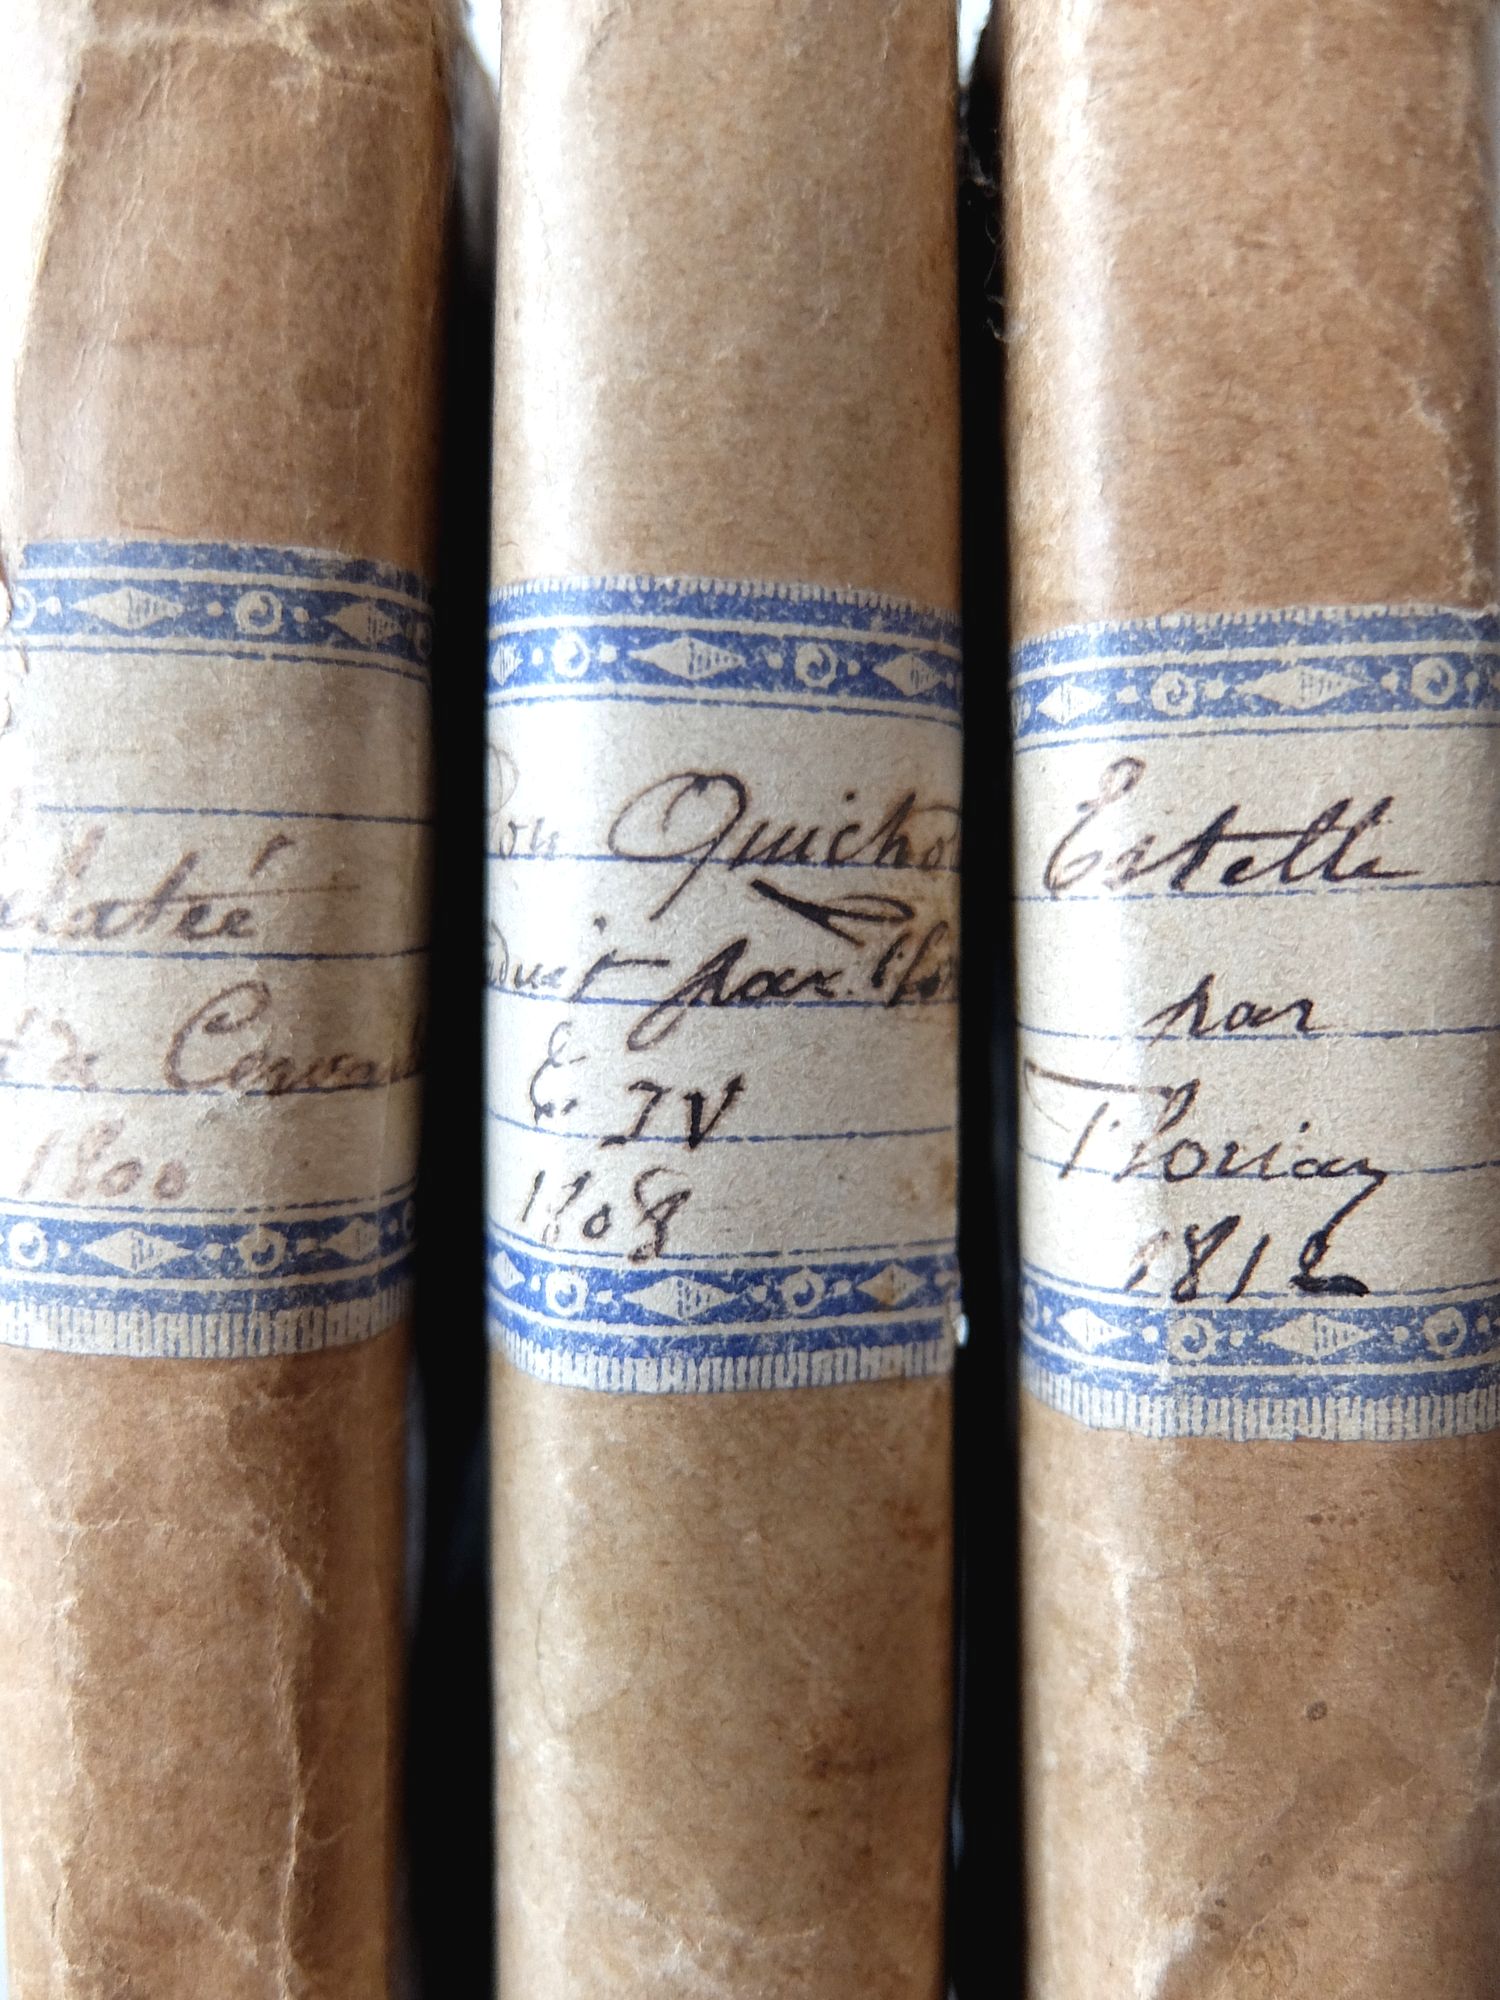 alatée
de Cervant
1800
Don Quichot
aduit par Flor
IV
1808
Estelle
par
Florian
1812